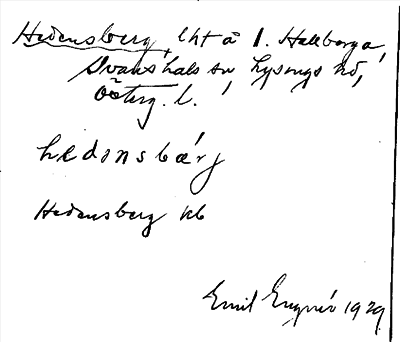 Hedensberg, lht å 1. Hallberga,
Svanshals sn Lysings hd,
Österg. l.
hedənsbærj
Hedensberg kb
Emil Engnér 1929